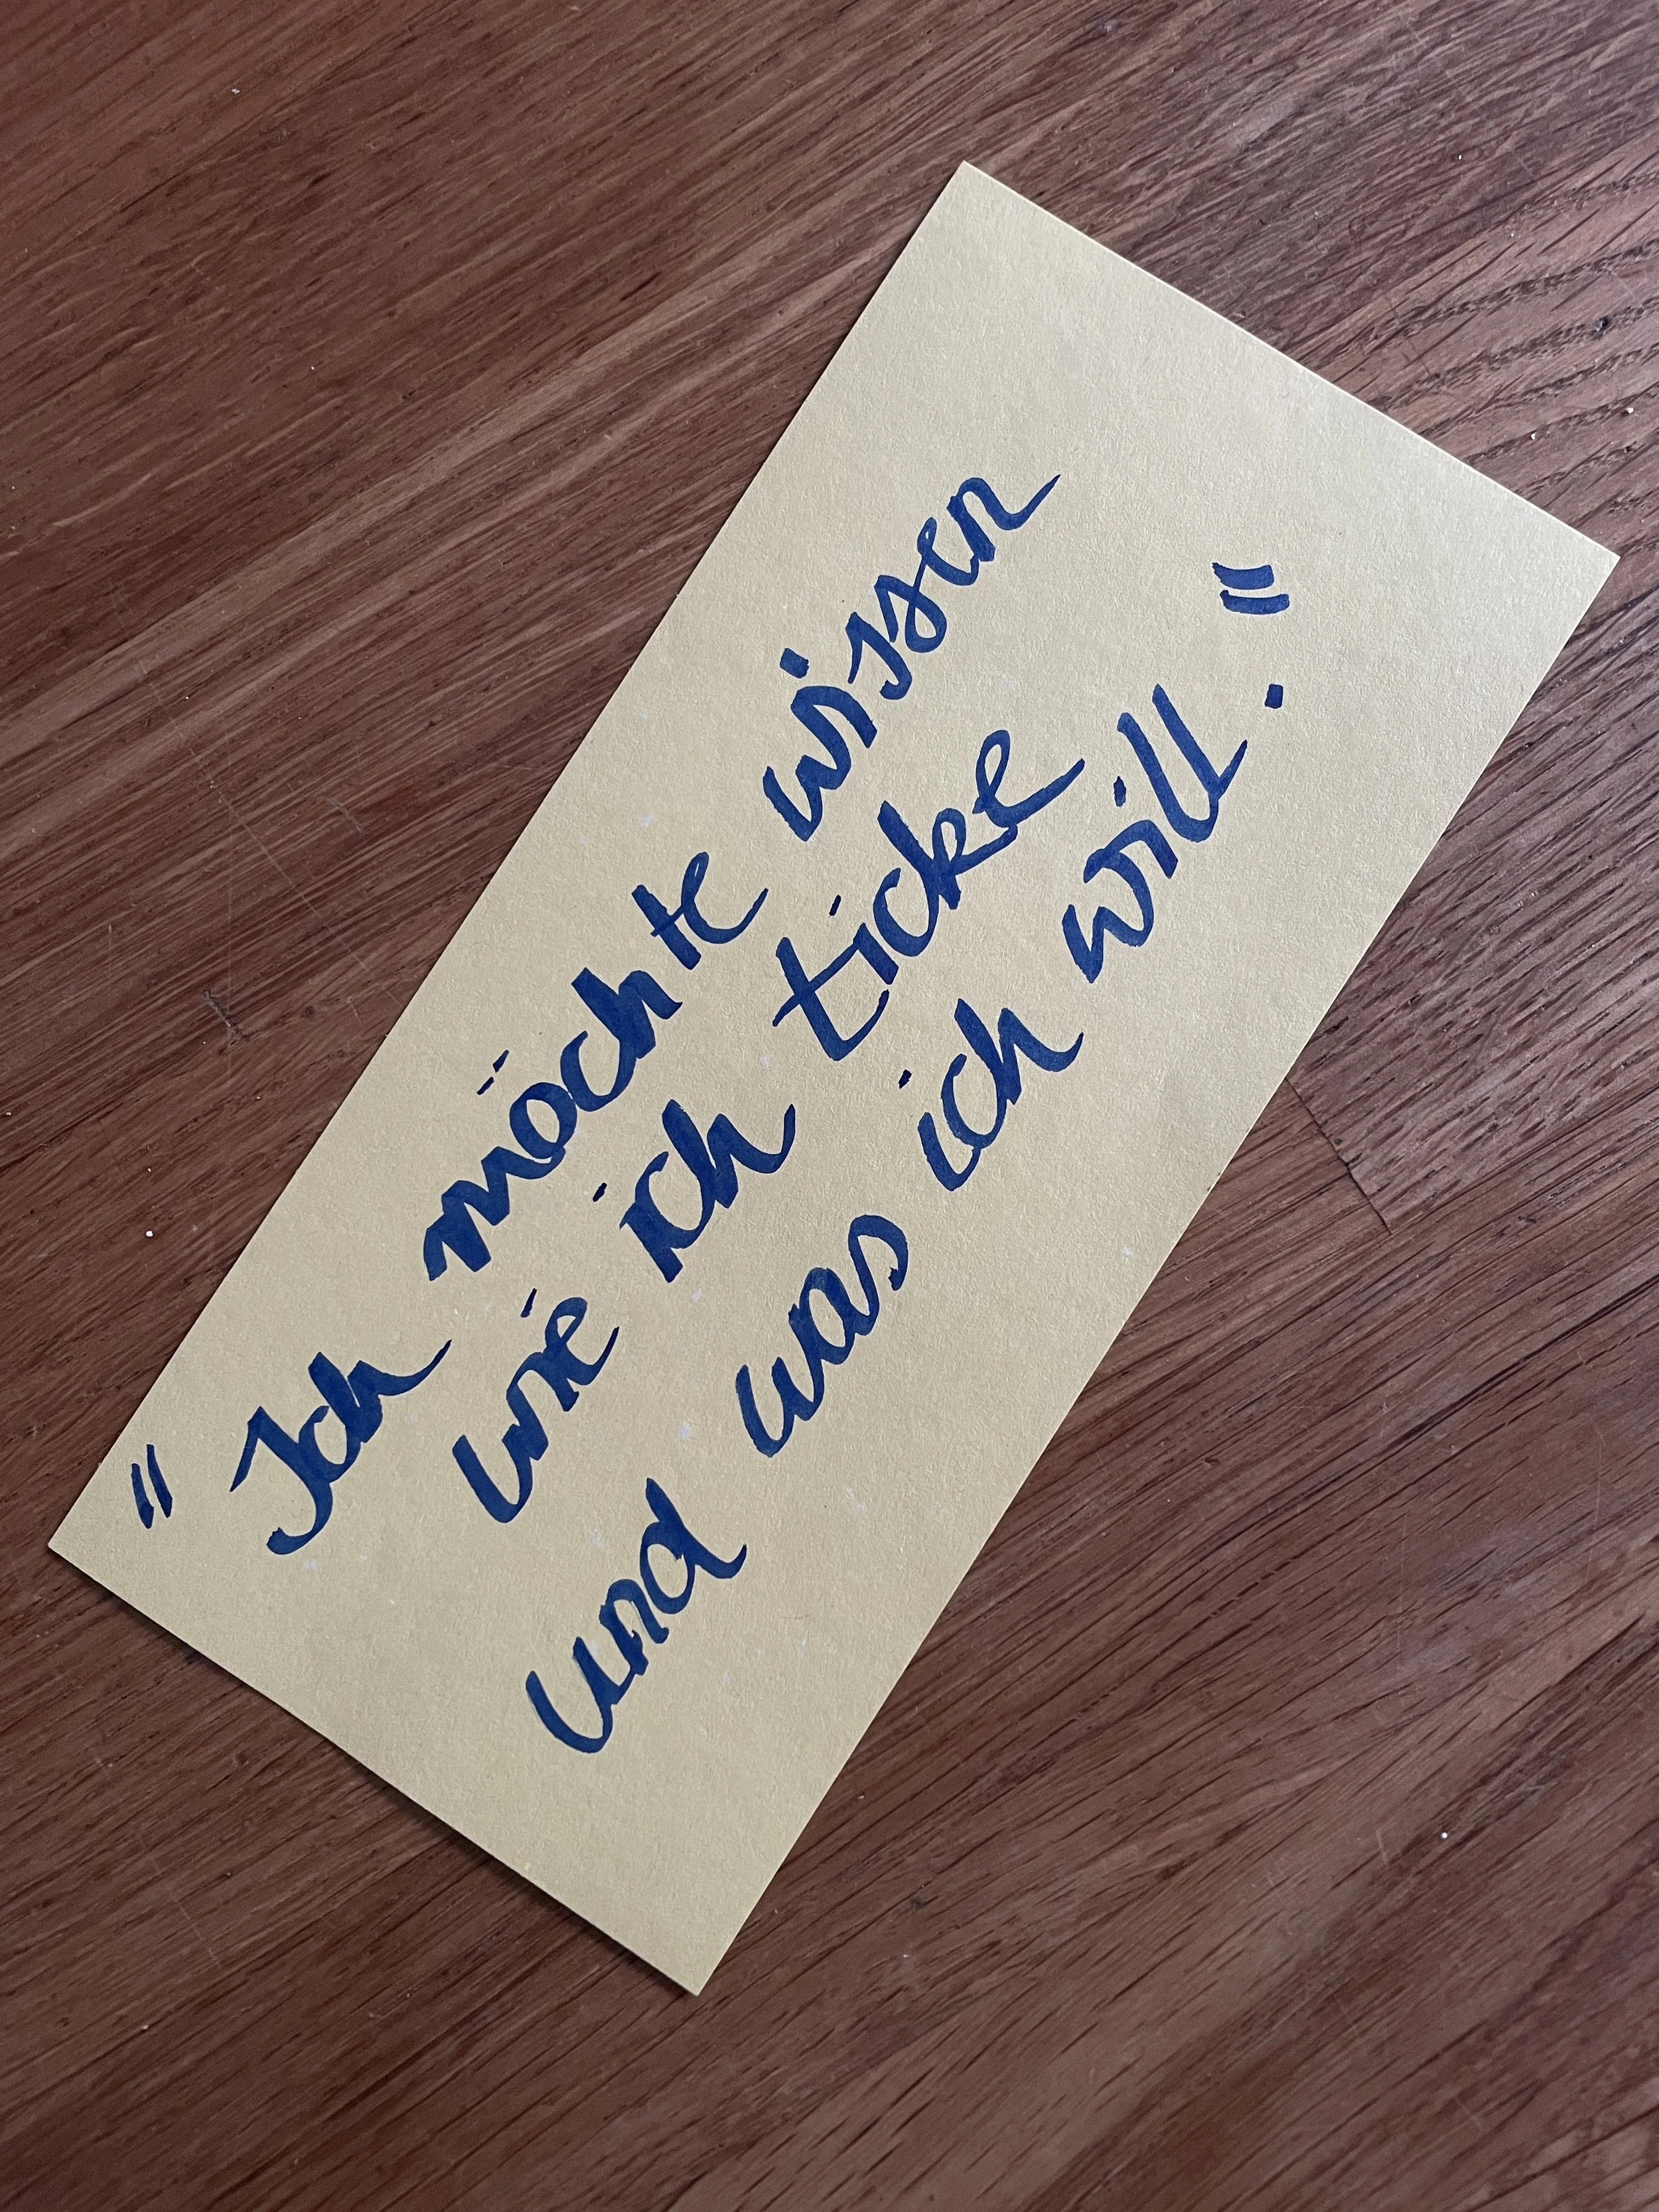 "Ich möchte wissen
wie ich ticke
und was ich will."